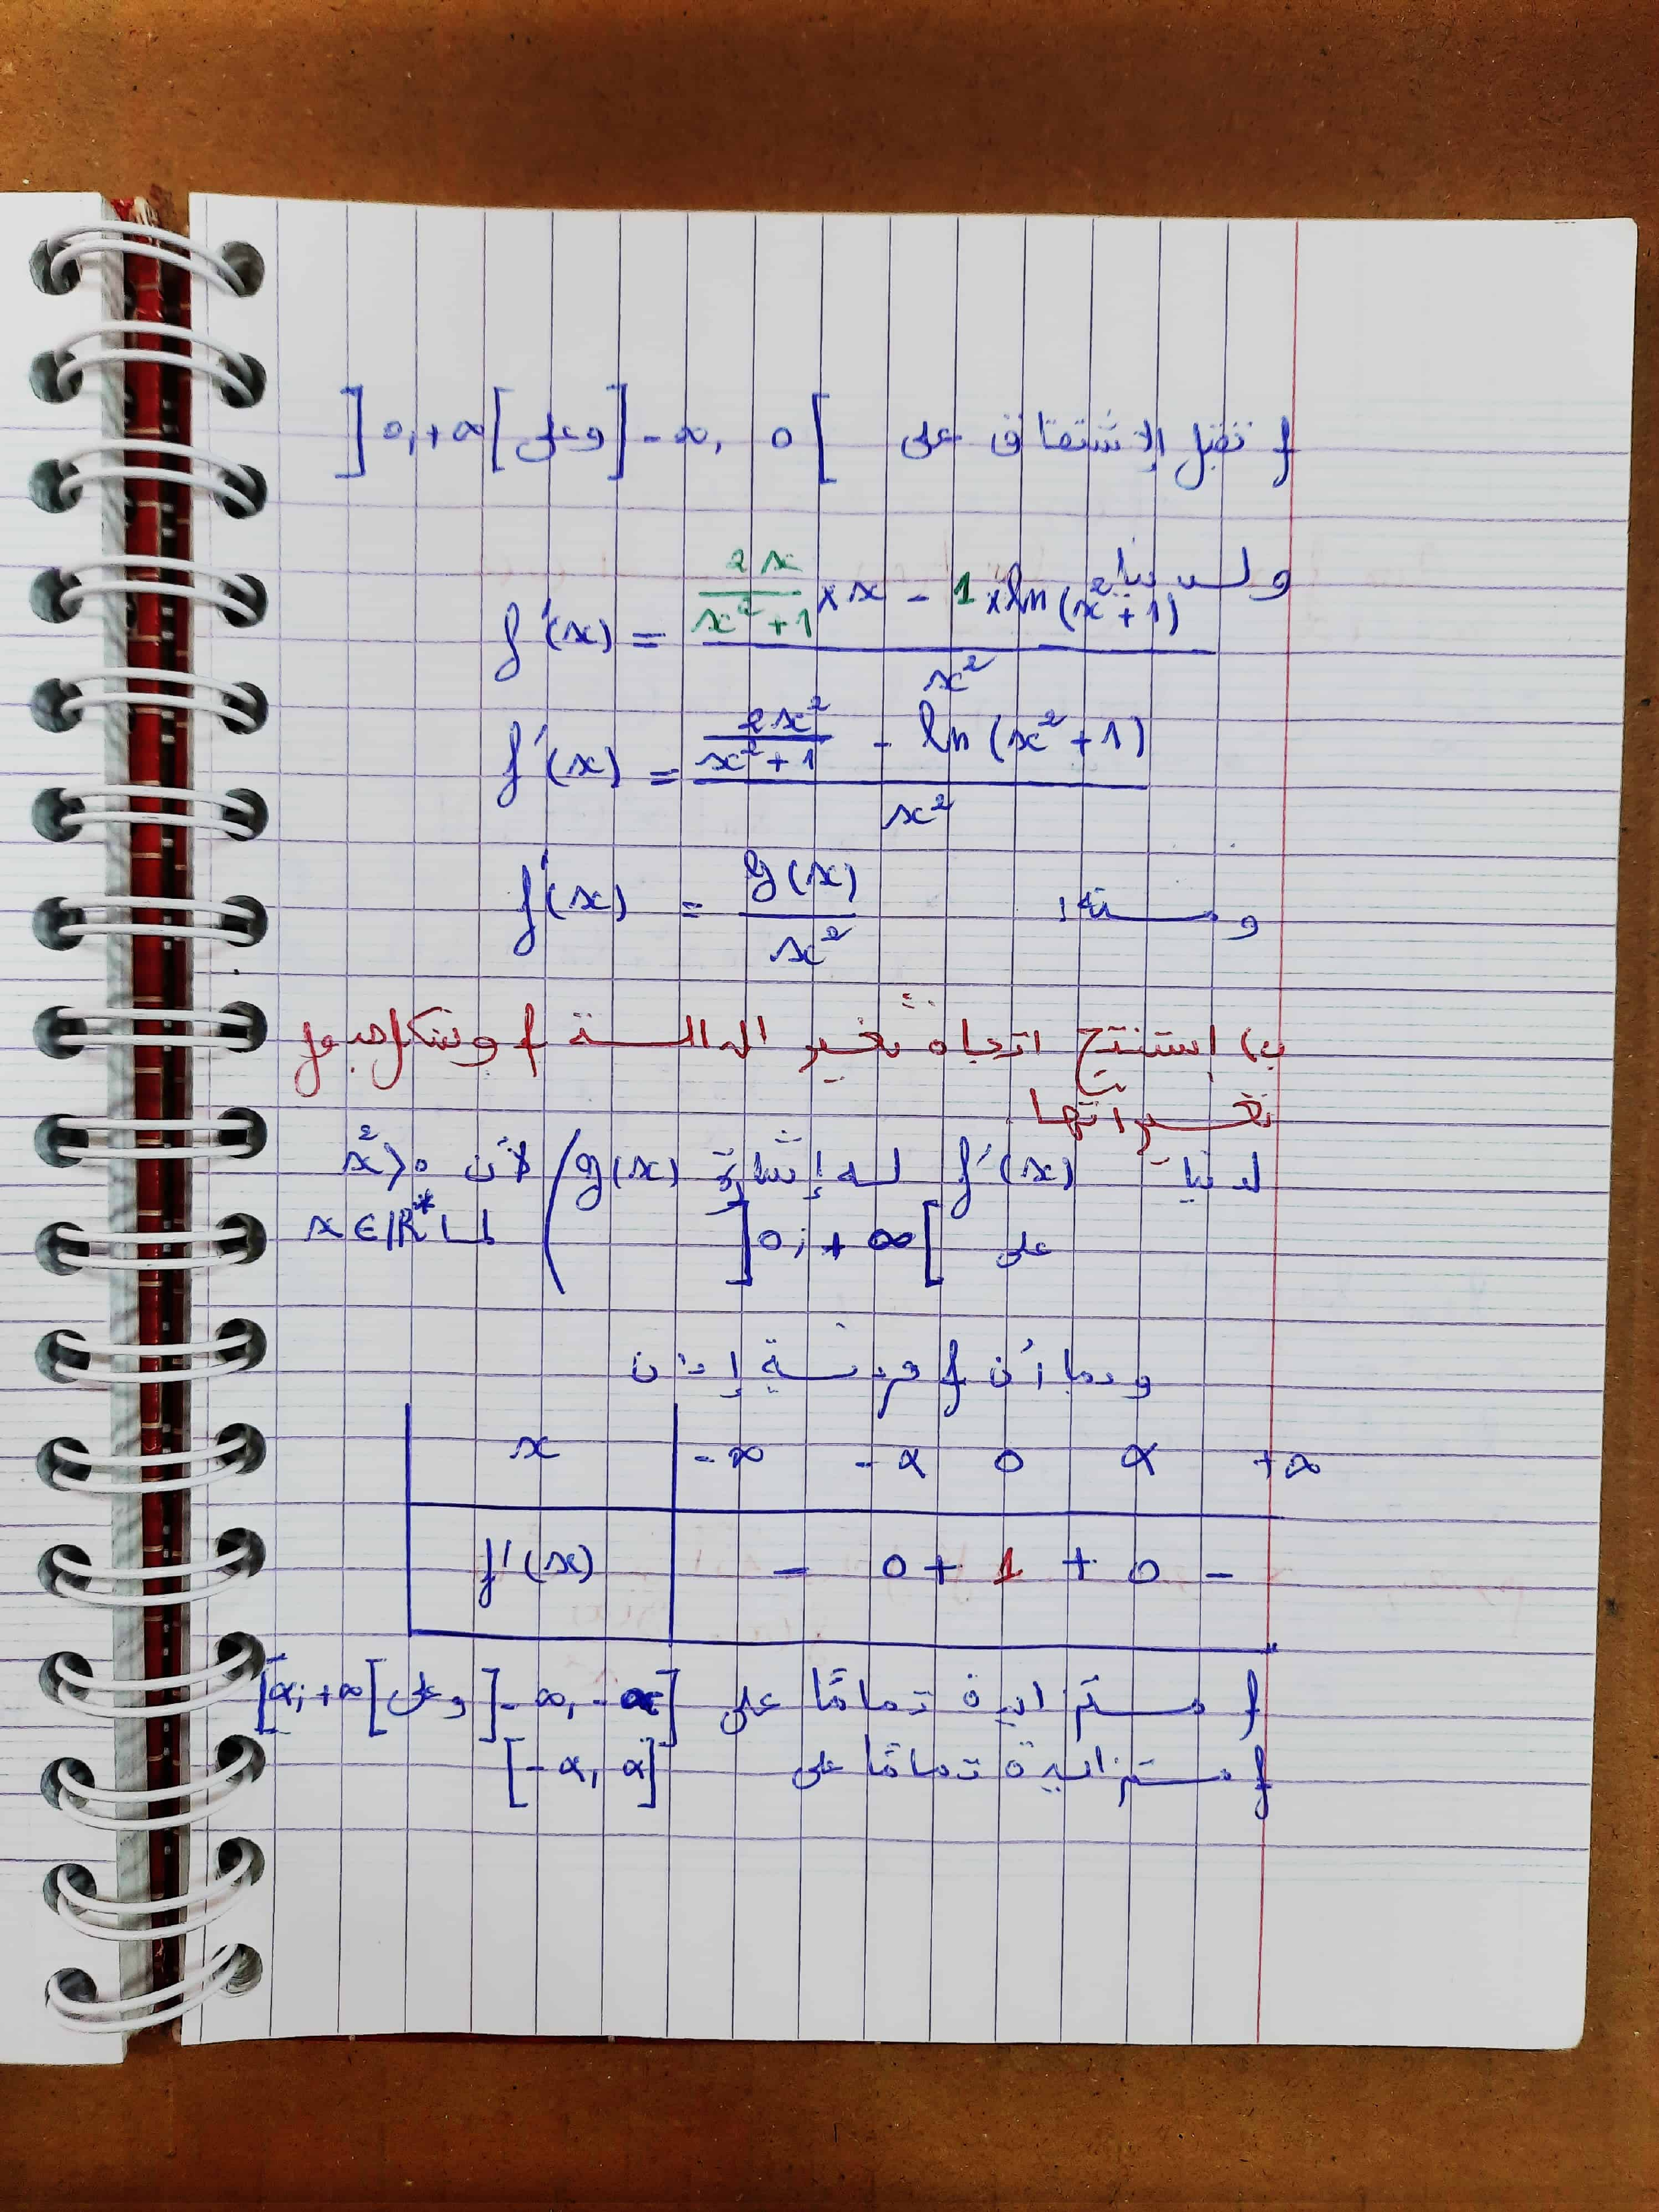 f تقبل الاشتقاق على ]-∞, 0[ وعلى ]0;+∞[
ولدينا:
f'(x) = (2x/(x²+1) × x - 1 × ln(x²+1)) / x²
f'(x) = (2x²/(x²+1) - ln(x²+1)) / x²
ومنه: f'(x) = g(x) / x²
ب) استنتج اتجاه تغير الدالة f وشكل جدول
تغيراتها
لدينا f'(x) له إشارة g(x) / لأن x² > 0
على ]0;+∞[ لما x∈ℝ*
وبما أن f فردية إذن
x | -∞ -α 0 α +∞
f'(x) | - 0 + 1 + 0 -
f متزايدة تمامًا على ]-∞, -α] وعلى [α;+∞[
f متزايدة تمامًا على [-α, α]